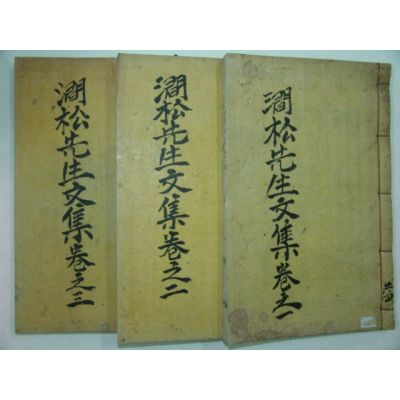 澗松先生文集卷之一
澗松先生文集卷之二
澗松先生文集卷之三
共四